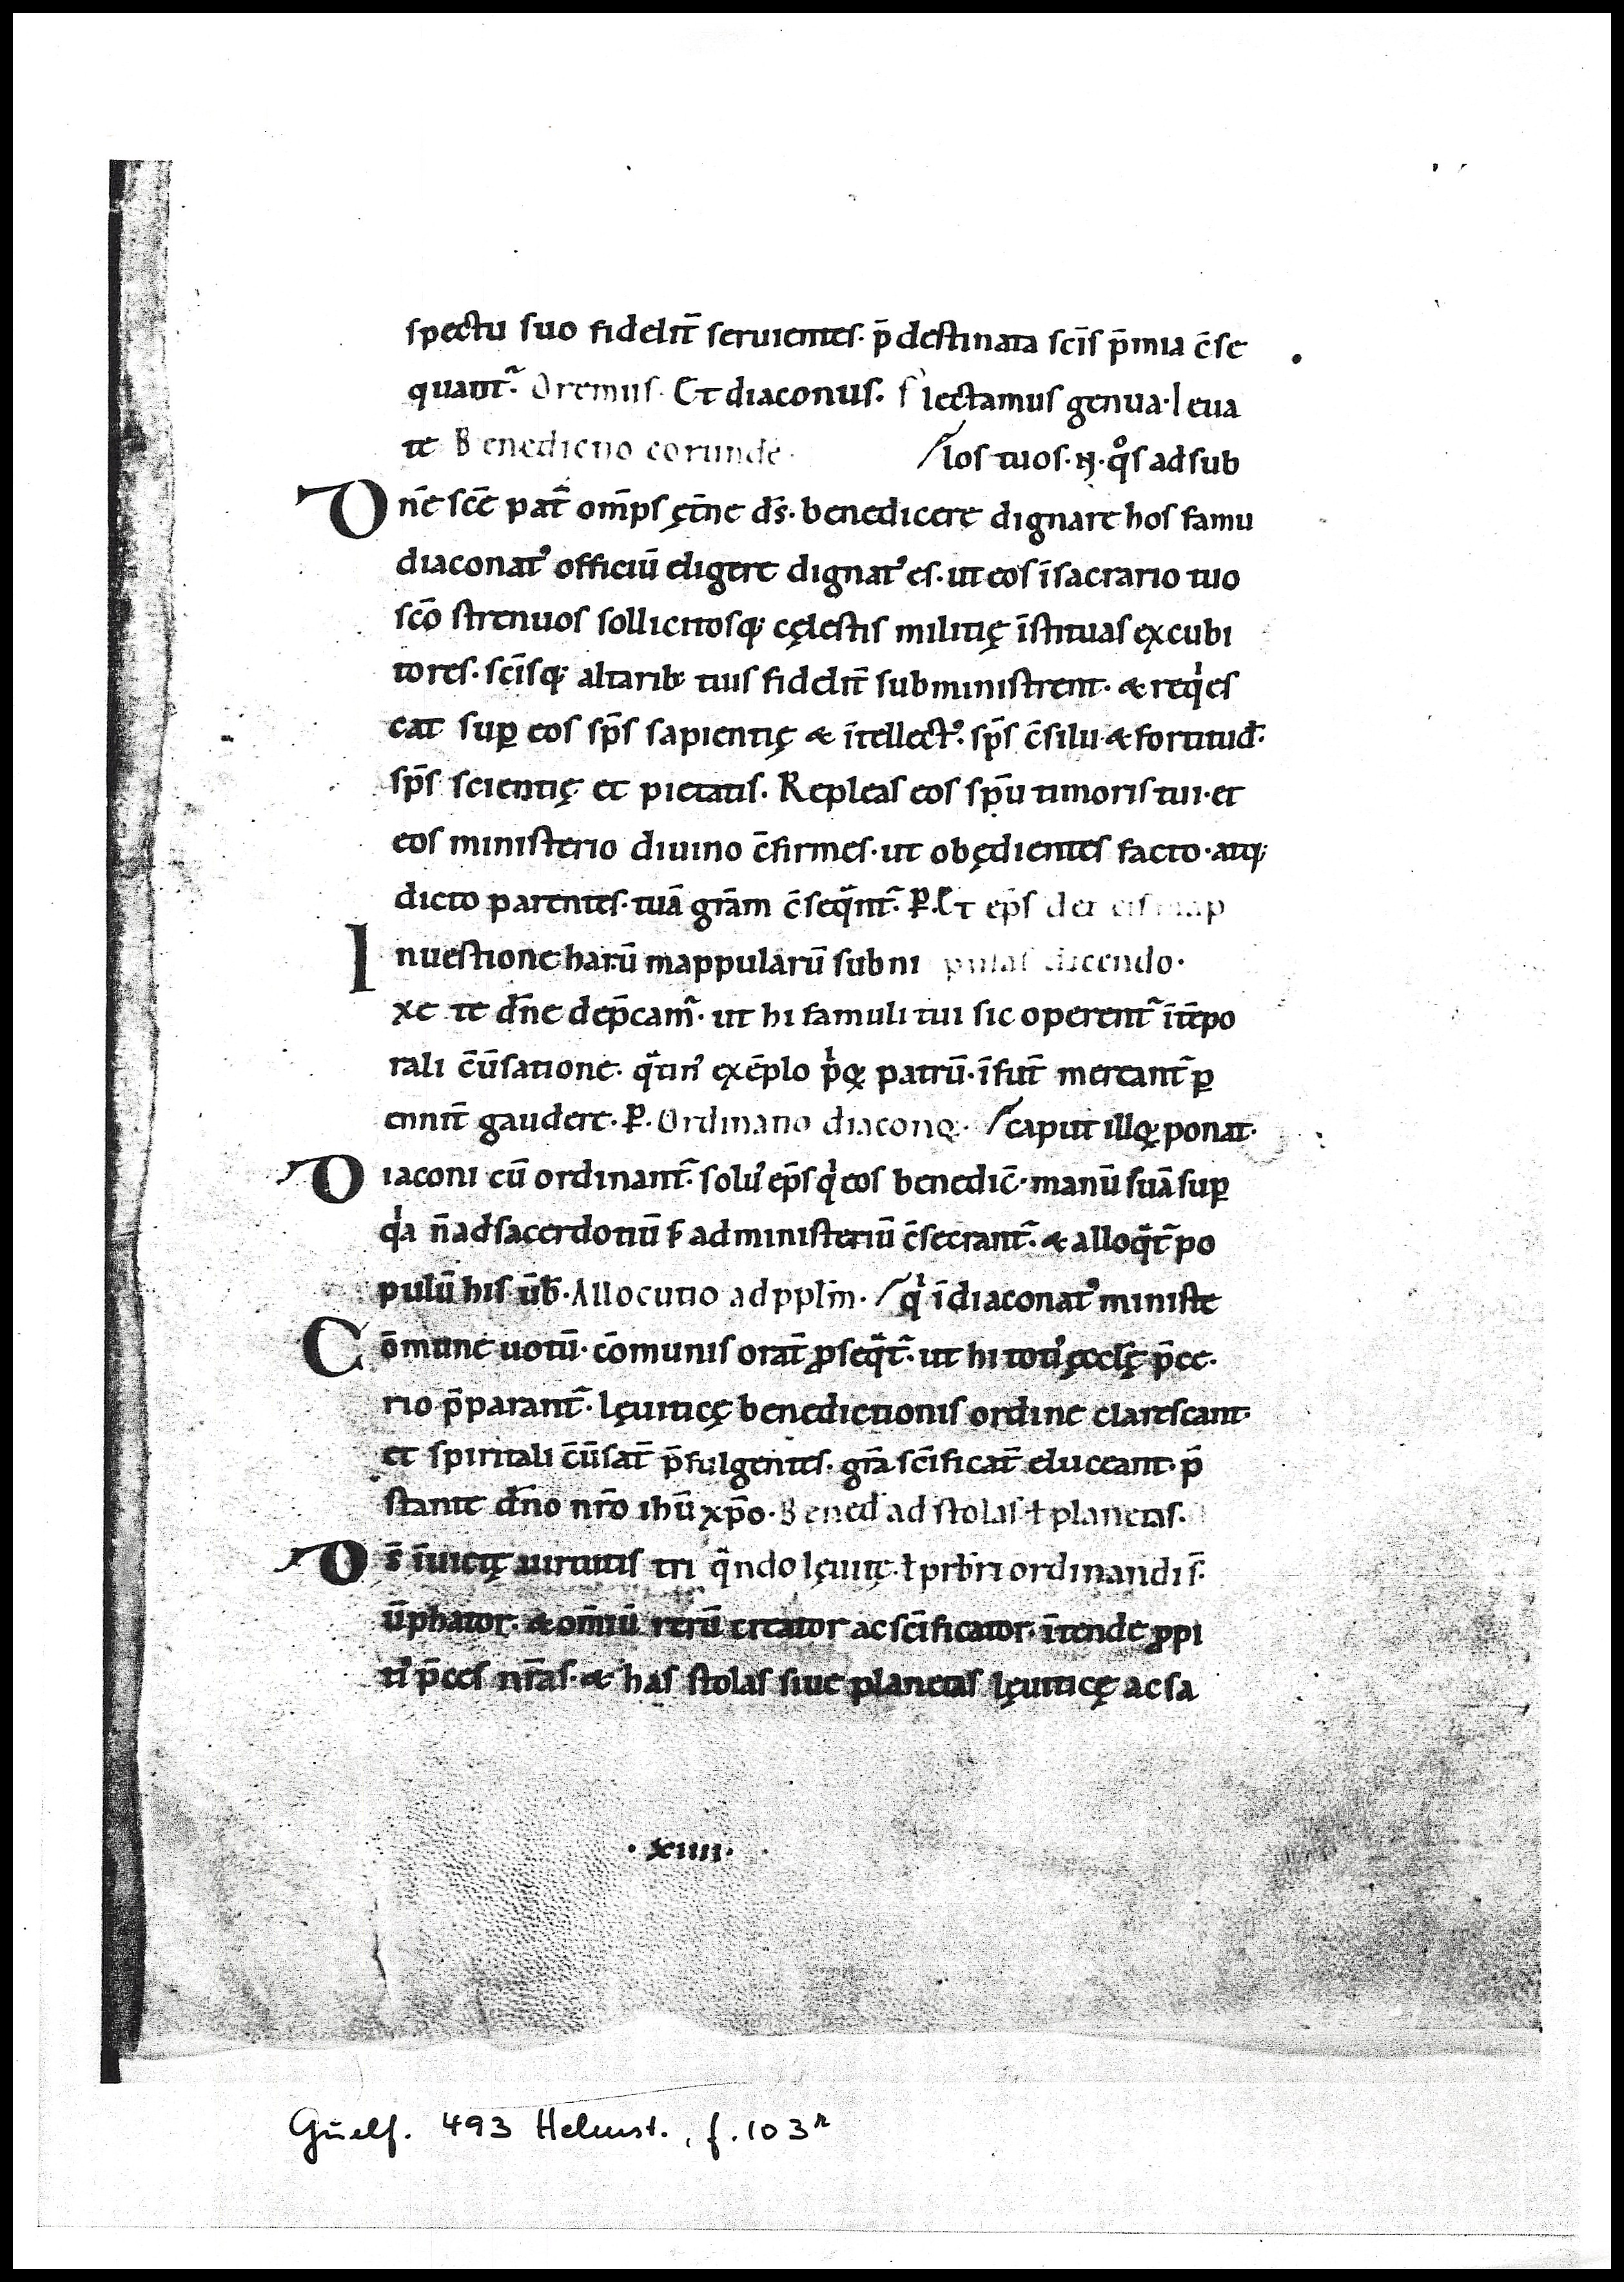 spectu suo fidelit̄ seruientes. p̄destinata sc̄is p̄mia c̄se
quant᷑. Oremus. Et diaconus. Flectamus genua. leua
te Benedictio eorundē. /los tuos. N. qͦs ad sub
Dn̄e sc̄e pat̄ om̄ps ęt̄ne ds̄. benedicere dignare hos famu
diaconatꝰ officiū eligere dignatꝰ es. ut eos ī sacrario tuo
sc̄o strenuos sollicitosq; cęlestis militię īstituas excubi
tores. sc̄isq; altarib; tuis fidelit̄ subministrent. & reqͥes
cat suꝑ eos sp̄s sapientię & ītellectꝰ. sp̄s c̄silii & fortitud̄.
sp̄s scientię et pietatis. Repleas eos sp̄u timoris tui. et
eos ministerio diuino c̄firmes. ut obędientes facto. atq;
dicto parentes. tuā grām c̄seqͣnt᷑. P̱. Et ep̄s det eis map
Inuestione harū mappularū subni pulas dicendo.
xe te dn̄e dep̄cam᷑. ut hi famuli tui sic operent᷑ ī tēpo
rali c̄ūsatione. qͣtinꝰ exēplo pͥoꝝ patrū. ī fut̄ mereant᷑ ꝑ
ennit̄ gaudere. P̱. Ordinatio diaconoꝝ. /caput illoꝝ ponat.
Diaconi cū ordinant᷑. solꝰ ep̄s qͥ eos benedic̄. manū suā suꝑ
qͥa n̄ ad sacerdotiū s; ad ministeriū c̄secrant᷑. & alloqͣt᷑ po
pulū his ūb. Allocutio ad pplm̄. /qͥ ī diaconatꝰ ministe
Cōmune uotū. cōmunis orat̄ ꝓseqͣt᷑. ut hi totiꝰ ęccl̄ę p̄ce.
rio p̄parant᷑. lęuiticę benedictionis ordine clarescant.
et spiritali c̄ūsat̄ p̄fulgentes. grā sc̄ificat̄ eluceant. p̄
stante dn̄o nr̄o ihū xp̄o. Bened̄ ad stolas ł planetas.
Ds̄ īuictę uirtutis tri qͣndo lęuitę. ł prb̄ri ordinandi s̄.
ūphator. & om̄iū rerū creator ac sc̄ificator. ītende ꝓpi
tiꝰ p̄ces nr̄as. & has stolas siue planetas lęuiticę ac sa
. xiiii.
Guelf. 493 Helmst., f. 103r